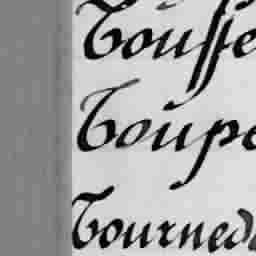 Touſſe
Toupe
Tourned